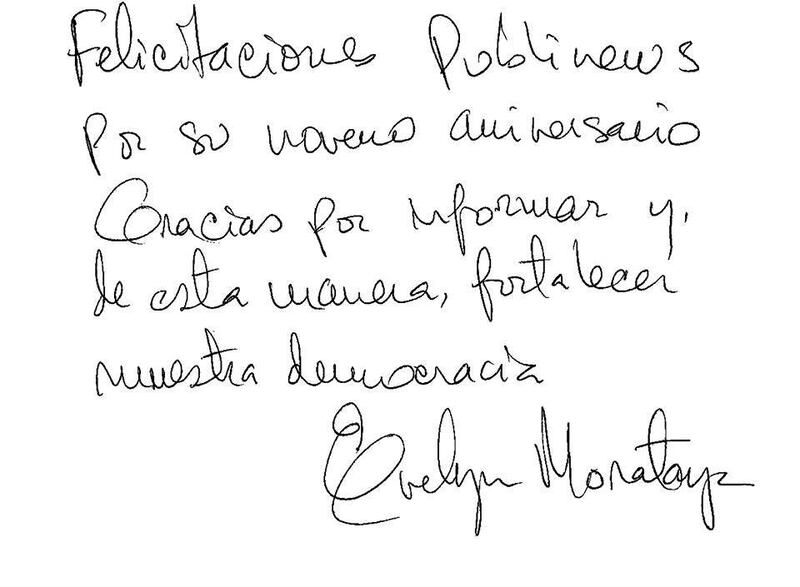 Felicitaciones Publinews
por su noveno aniversario
Gracias por informar y,
de esta manera, fortalecer
nuestra democracia
Evelyn Morataya